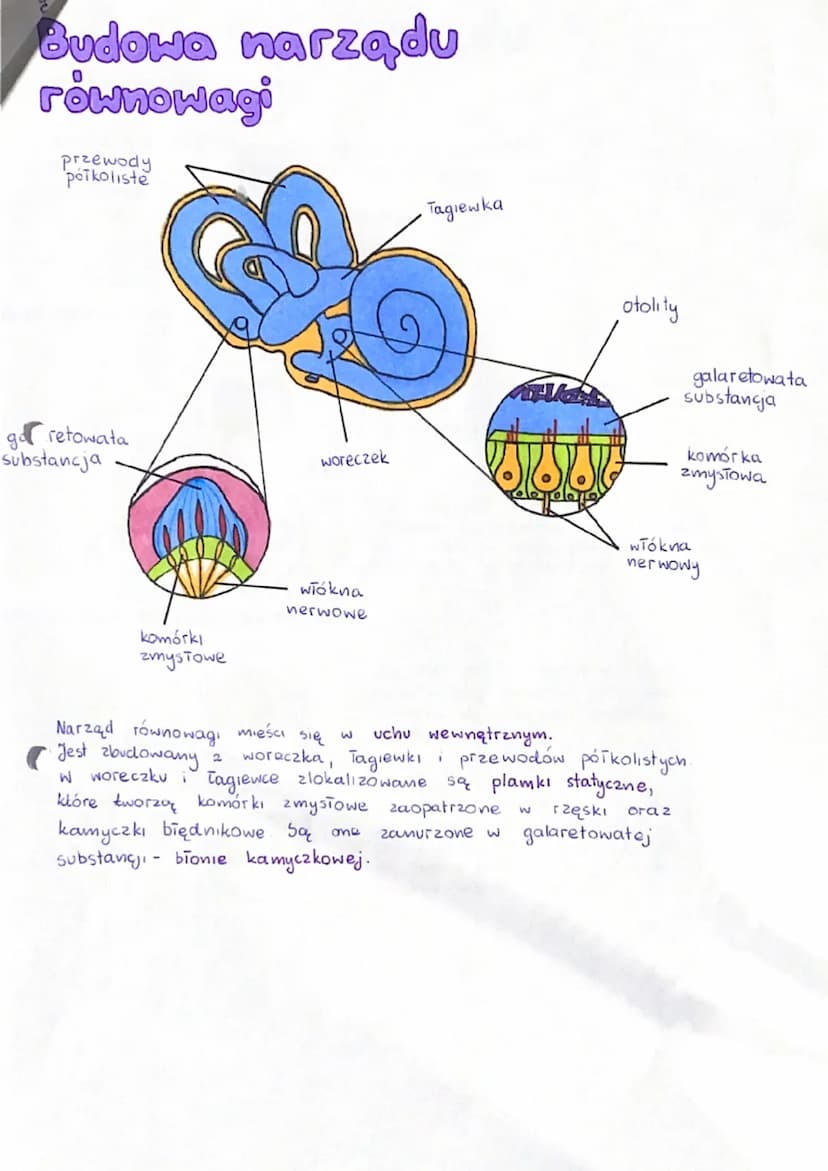 Budowa narządu
równowagi
przewody
półkoliste
łagiewka
otolity
galaretowata
substancja
komórka
zmysłowa
włókna
nerwowy
woreczek
retowata
substancja
włókna
nerwowe
komórki
zmysłowe
Narząd równowagi mieści się w uchu wewnętrznym.
Jest zbudowany z woreczka, łagiewki i przewodów półkolistych.
W woreczku i łagiewce zlokalizowane są plamki statyczne,
które tworzą komórki zmysłowe zaopatrzone w rzęski oraz
kamyczki błędnikowe. Są one zanurzone w galaretowatej
substancji - błonie kamyczkowej.